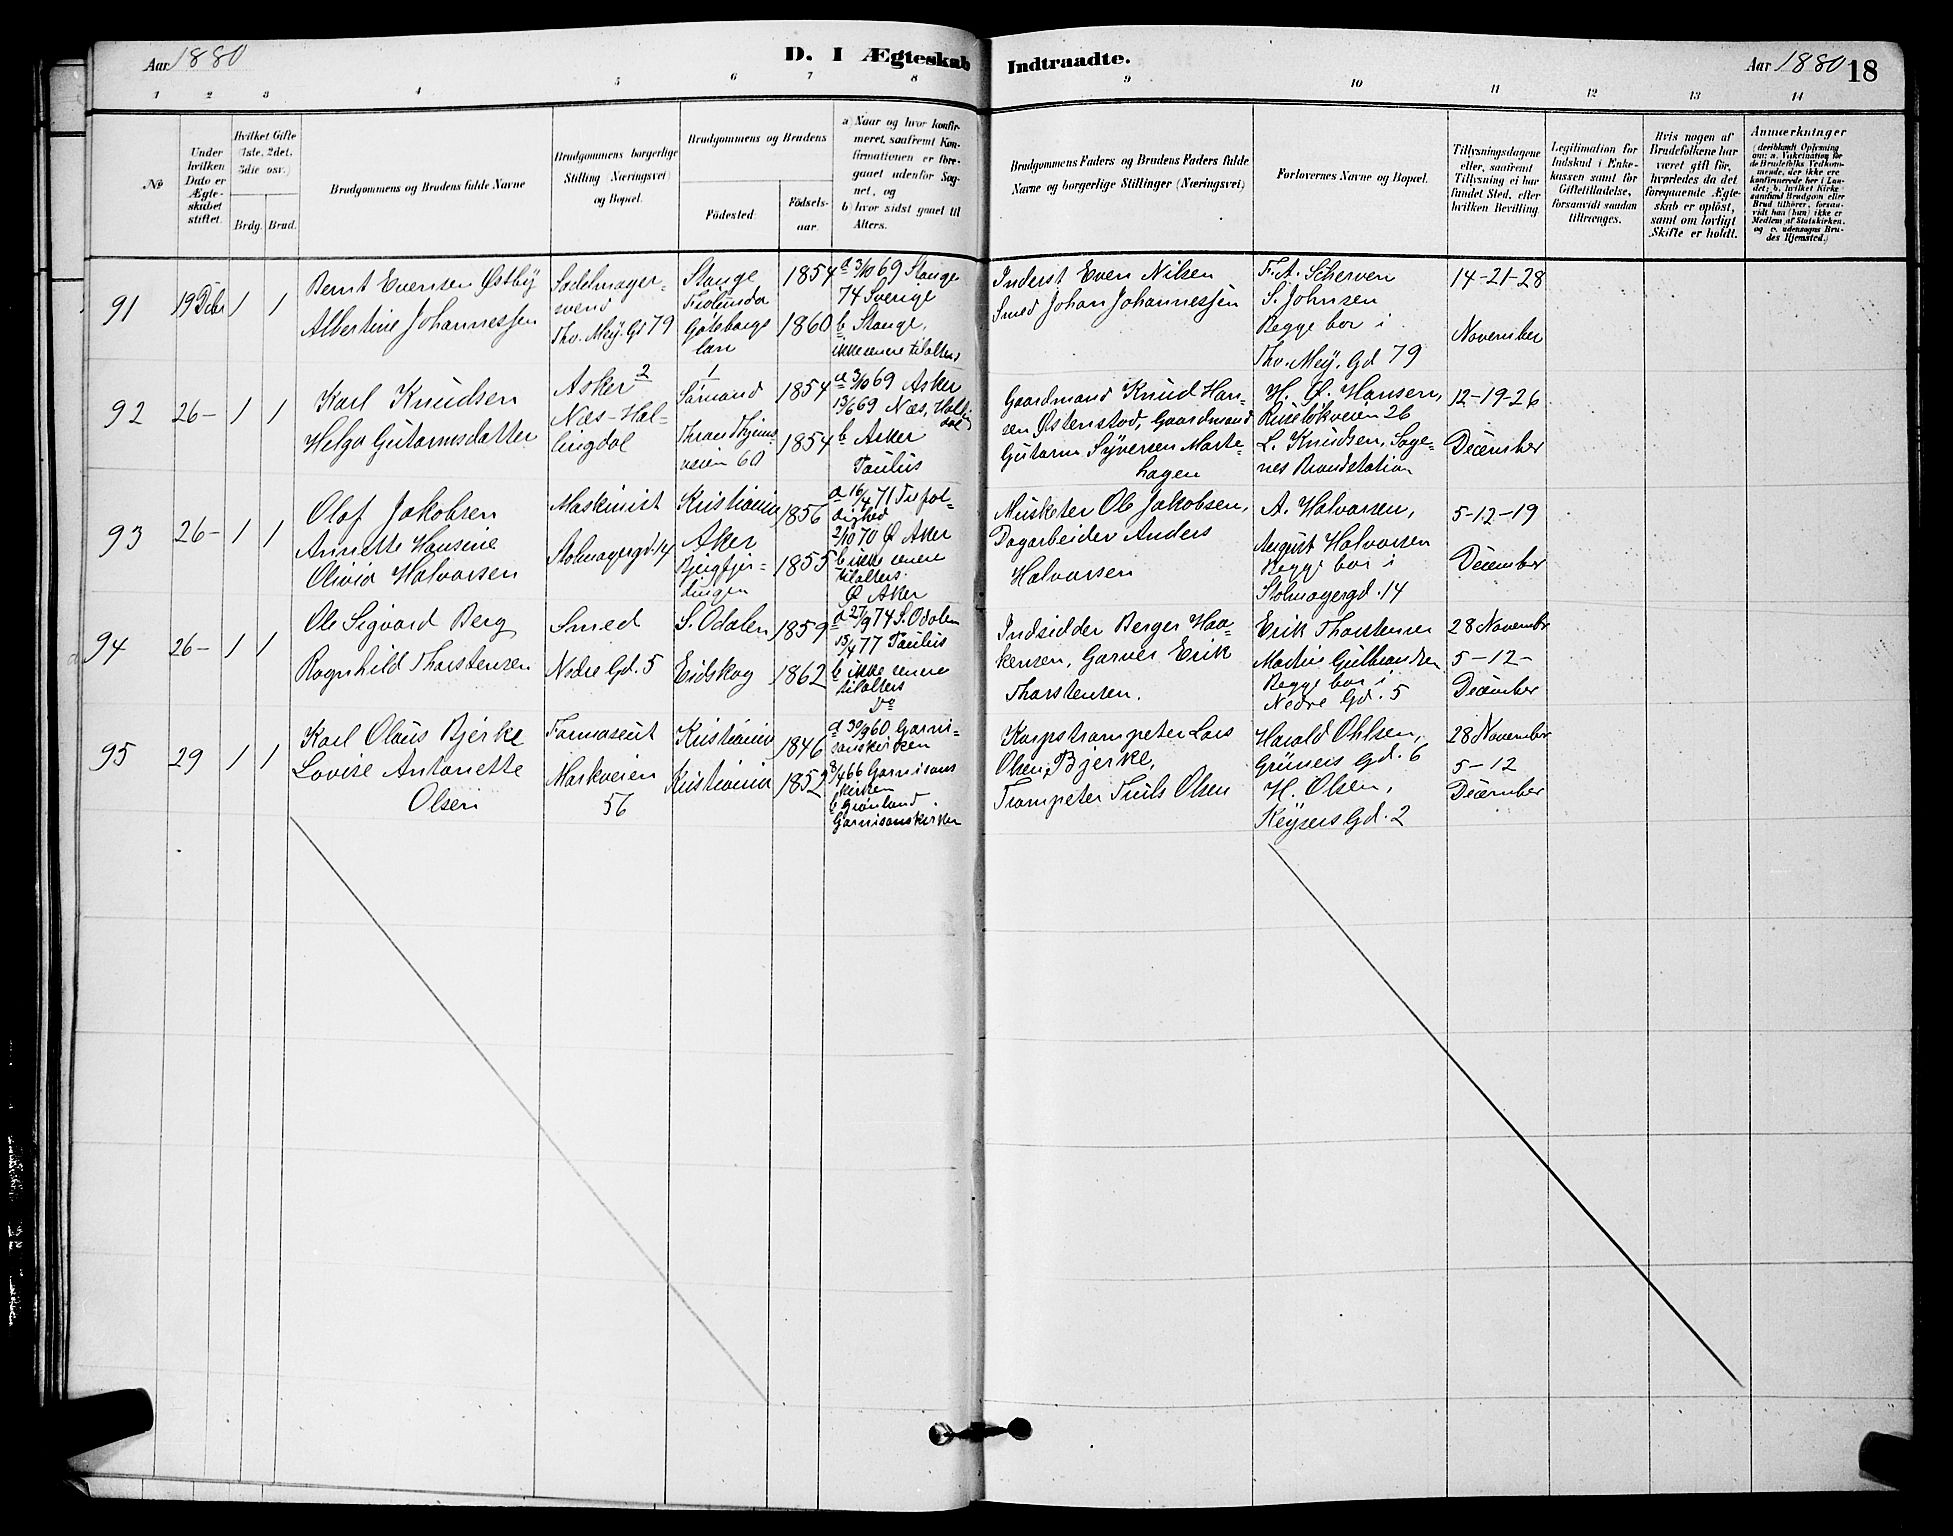 Aar 1880
D. I Ægteskab Indtraadte.
Aar 1880 18
1 2 3 4 5 6 7 8 9 10 11 12 13 14
No
Under hvilken Dato er Ægteskabet stiftet.
Hvilket Gifte (1ste, 2det, 3die osv.)
Brdg. Brud.
Brudgommens og Brudens fulde Navne
Brudgommens borgerlige Stilling (Næringsvei) og Bopæl.
Brudgommens og Brudens
Födested.
Födselsaar.
a) Naar og hvor konfirmeret, saafremt Konfirmationen er foregaaet udenfor Sognet, og
b) hvor sidst gaaet til Alters.
Brudgommens Faders og Brudens Faders fulde Navne og borgerlige Stillinger (Næringsvei)
Forlovernes Navne og Bopæl.
Tillysningsdagene eller, saafremt Tillysning ei har fundet Sted, efter hvilken Bevilling.
Legitimation for Indskud i Enkekassen samt for Giftetilladelse, forsaavidt saadan tiltrænges.
Hvis nogen af Brudefolkene har været gift før, hvorledes da det foregaaende Ægteskab er opløst, samt om lovligt Skifte er holdt.
Anmærkninger (deriblandt Oplysning om: a. Vakcination for de Brudefolks Vedkommende, der ikke ere konfirmerede her i Landet; b. hvilket Kirkesamfund Brudgom eller Brud tilhører, forsaavidt han (hun) ikke er Medlem af Statskirken, og c. udensogns Brudes Hjemsted.)
91
19 Dcbr
1 1
Bernt Evensen Østby
Albertine Johannessen
Sadelmager-
svend
Thv. Mey. Gd 79
Stange
Göteborgs
län
1854
1860
a 3/10 69 Stange
74 Sverige
b Stange,
ikke senere tilalters
Inderst Even Nilsen
Smed Johan Johannessen
F. A. Scherven
S. Johnsen
Begge bor i
Thv. Mey. Gd 79
14-21-28
November
92
26-
1 1
Karl Knudsen
Helga Guttormsdatter
Asker 2
Næs-Hal-
lingdal
1
Sörmand
Throndhjems-
veien 60
1854
1854
a 3/10 69 Asker
13/6 69 Næs, Halling-
dal
b Asker
Paulus
Gaardmand Knud Han-
sen Østenstad, Gaardmand
Guttorm Syversen Marte-
hagen
H. O. Hansen,
Ruseløkveien 26
L. Knudsen, Sage-
nes Brandstation
12-19-26
December
93
26-
1 1
Olaf Jakobsen
Annette Hansine
Olivia Halvorsen
Maskinist
Stolmagergd. 14
Kristiania
Aker
1856
1855
a 16/4 71 Trefol-
dighed
2/10 70 Ø Aker
b ikke senere
tilalters.
Ø Aker
Musketer Ole Jakobsen,
Dagarbeider Anders
Halvorsen
A. Halvorsen,
August Halvorsen
Begge bor i
Stolmagergd. 14
5-12-19
December
94
26-
1 1
Ole Sigvard Berg
Ragnhild Thorstensen
Smed
Nedre Gd. 5
S. Odalen
Eidskog
1859
1862
a 27/9 74 S. Odalen
15/4 77 Paulus
b ikke senere
tilalters
Do
Indsidder Berger Haa-
kensen, Garver Erik
Thorstensen.
Erik Thorstensen
Martin Gulbrandsen
Begge bor i
Nedre Gd. 5
28 Novembr
5-12-
December
95
29
1 1
Karl Olaus Bjerke
Lovise Antonette
Olsen
Farmaseut
Markveien
56
Kristiania
Kristiania
1846
1852
a 30/9 60 Garni-
sonskirken
8/4 66 Garnisons
kirken
b Grønland.
Garnisonskirken
Korpstrompeter Lars
Olsen Bjerke,
Trompeter Truls Olsen
Harald Ohlsen,
Grünersgd. 6
H. Olsen,
Keysers Gd. 2
28 November
5-12
December